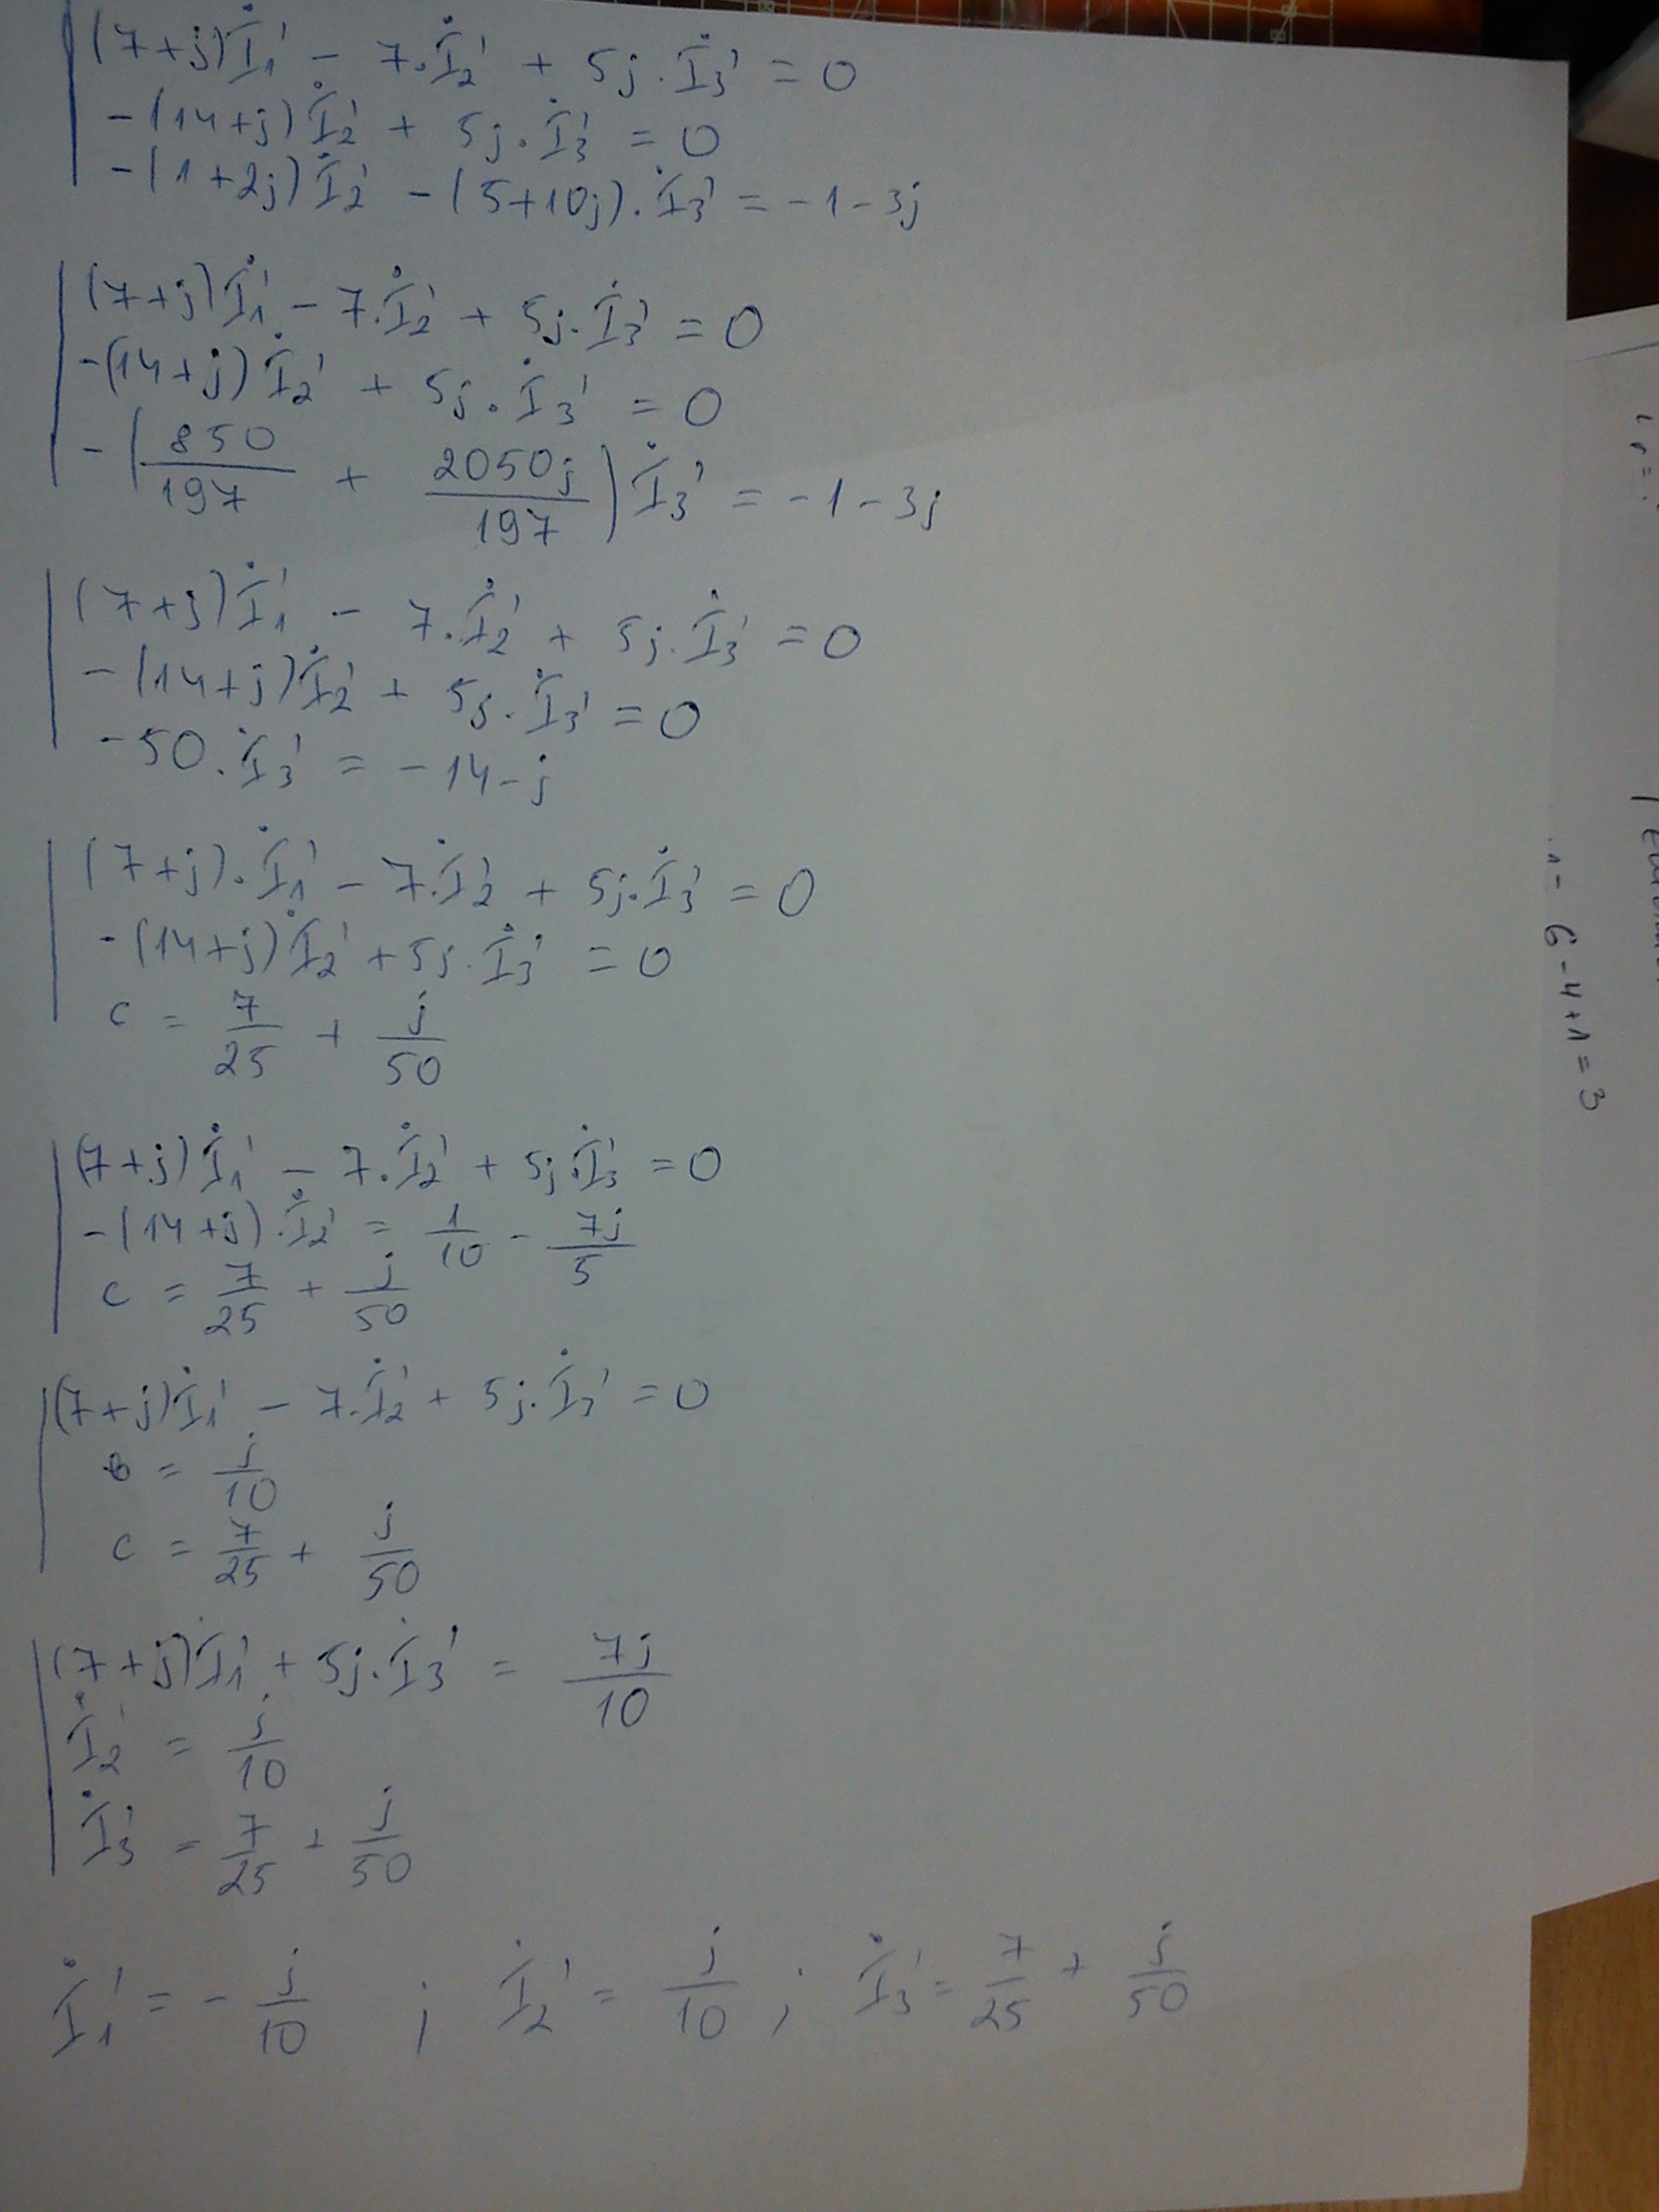 (7+j)İ₁' - 7.İ₂' + 5j.İ₃' = 0
-(14+j)İ₂' + 5j.İ₃' = 0
-(1+2j)İ₂' - (5+10j).İ₃' = -1-3j
(7+j)İ₁' - 7.İ₂' + 5j.İ₃' = 0
-(14+j)İ₂' + 5j.İ₃' = 0
-(850/197 + 2050j/197)İ₃' = -1-3j
(7+j)İ₁' - 7.İ₂' + 5j.İ₃' = 0
-(14+j)İ₂' + 5j.İ₃' = 0
-50.İ₃' = -14-j
(7+j).İ₁' - 7.İ₂' + 5j.İ₃' = 0
-(14+j)İ₂' + 5j.İ₃' = 0
c = 7/25 + j/50
(7+j)İ₁' - 7.İ₂' + 5j.İ₃' = 0
-(14+j).İ₂' = 1/10 - 7j/5
c = 7/25 + j/50
(7+j)İ₁' - 7.İ₂' + 5j.İ₃' = 0
b = j/10
c = 7/25 + j/50
(7+j)İ₁' + 5j.İ₃' = 7j/10
İ₂' = j/10
İ₃' = 7/25 + j/50
İ₁' = -j/10 ; İ₂' = j/10 ; İ₃' = 7/25 + j/50
6-4+1=3